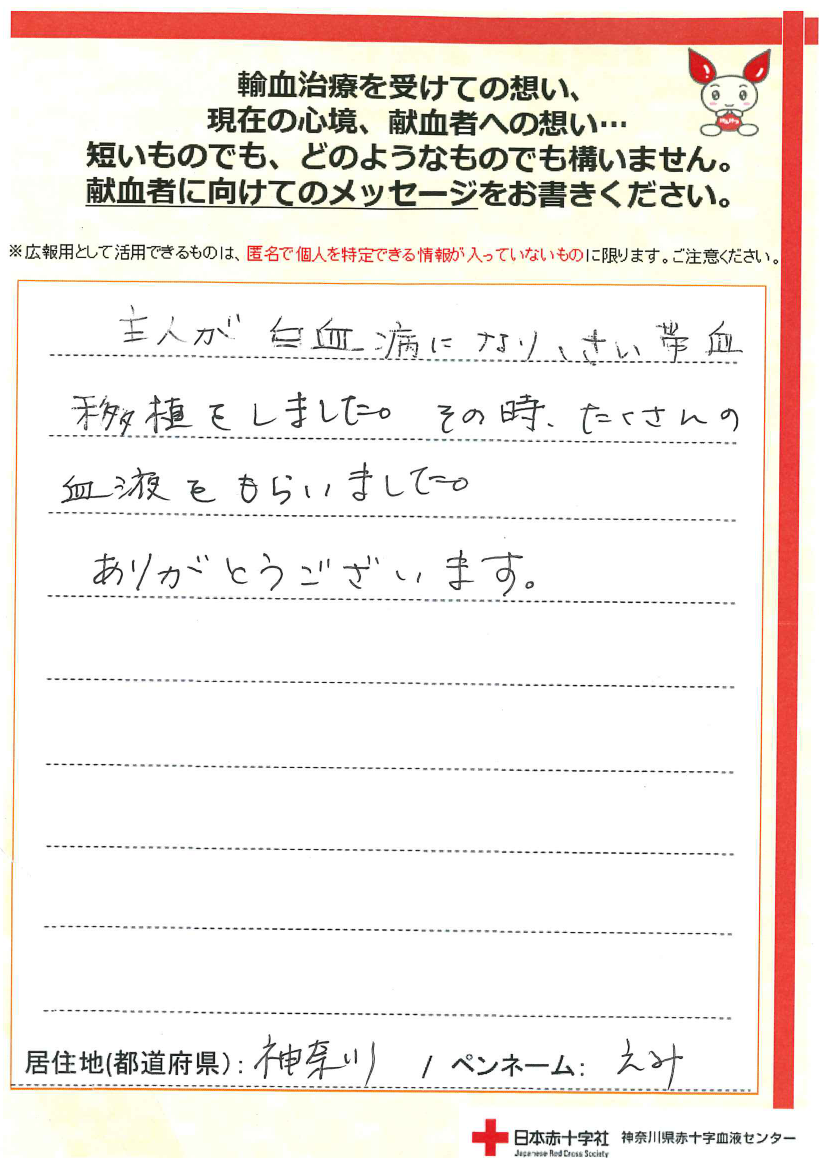 輸血治療を受けての想い、
現在の心境、献血者への想い…
短いものでも、どのようなものでも構いません。
献血者に向けてのメッセージをお書きください。
※広報用として活用できるものは、匿名で個人を特定できる情報が入っていないものに限ります。ご注意ください。
主人が白血病になり、さい帯血
移植をしました。その時、たくさんの
血液をもらいました。
ありがとうございます。
居住地(都道府県)：神奈川 / ペンネーム： えみ
日本赤十字社 神奈川県赤十字血液センター
Japanese Red Cross Society